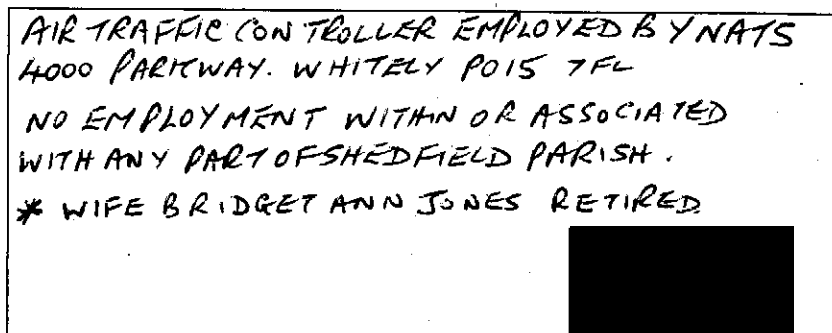 AIR TRAFFIC CONTROLLER EMPLOYED BY NATS
4000 PARKWAY. WHITELY PO15 7FL
NO EMPLOYMENT WITHIN OR ASSOCIATED
WITH ANY PART OF SHEDFIELD PARISH.
* WIFE BRIDGET ANN JONES RETIRED